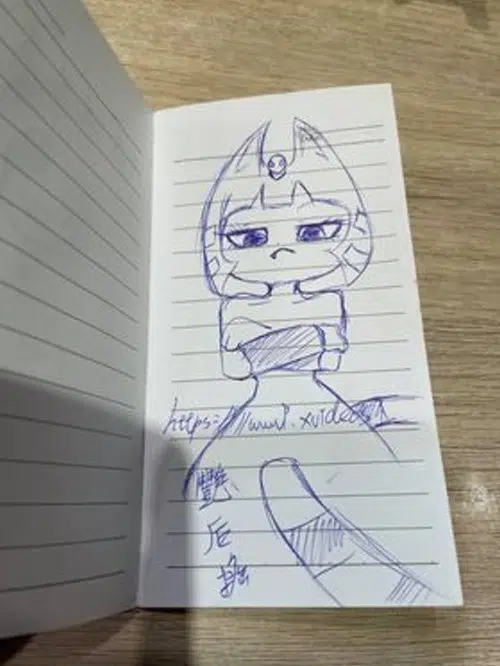 https://www.xvideo
艷后